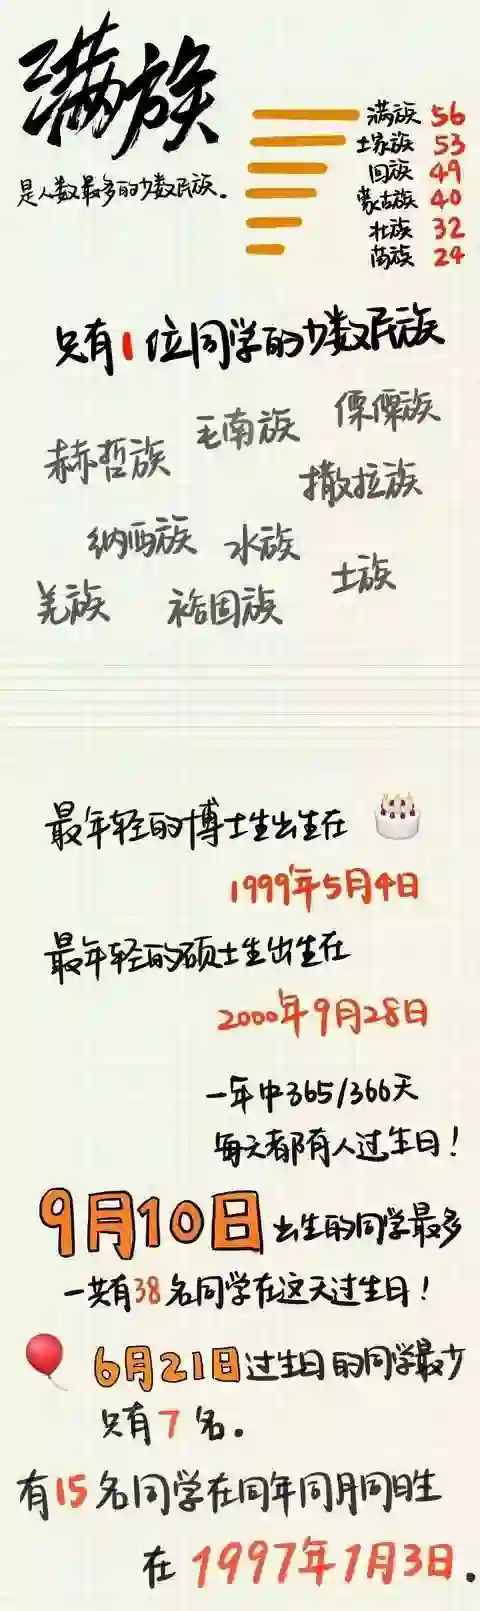 满族
是人数最多的少数民族。
满族 56
土家族 53
回族 49
蒙古族 40
壮族 32
苗族 24
只有1位同学的少数民族
傈僳族
毛南族
赫哲族
撒拉族
纳西族
水族
土族
羌族
裕固族
最年轻的博士生出生在
1999年5月4日
最年轻的硕士生出生在
2000年9月28日
一年中365/366天
每天都有人过生日！
9月10日出生的同学最多
一共有38名同学在这天过生日！
6月21日过生日的同学最少
只有7名。
有15名同学在同年同月同日生
在1997年1月3日。